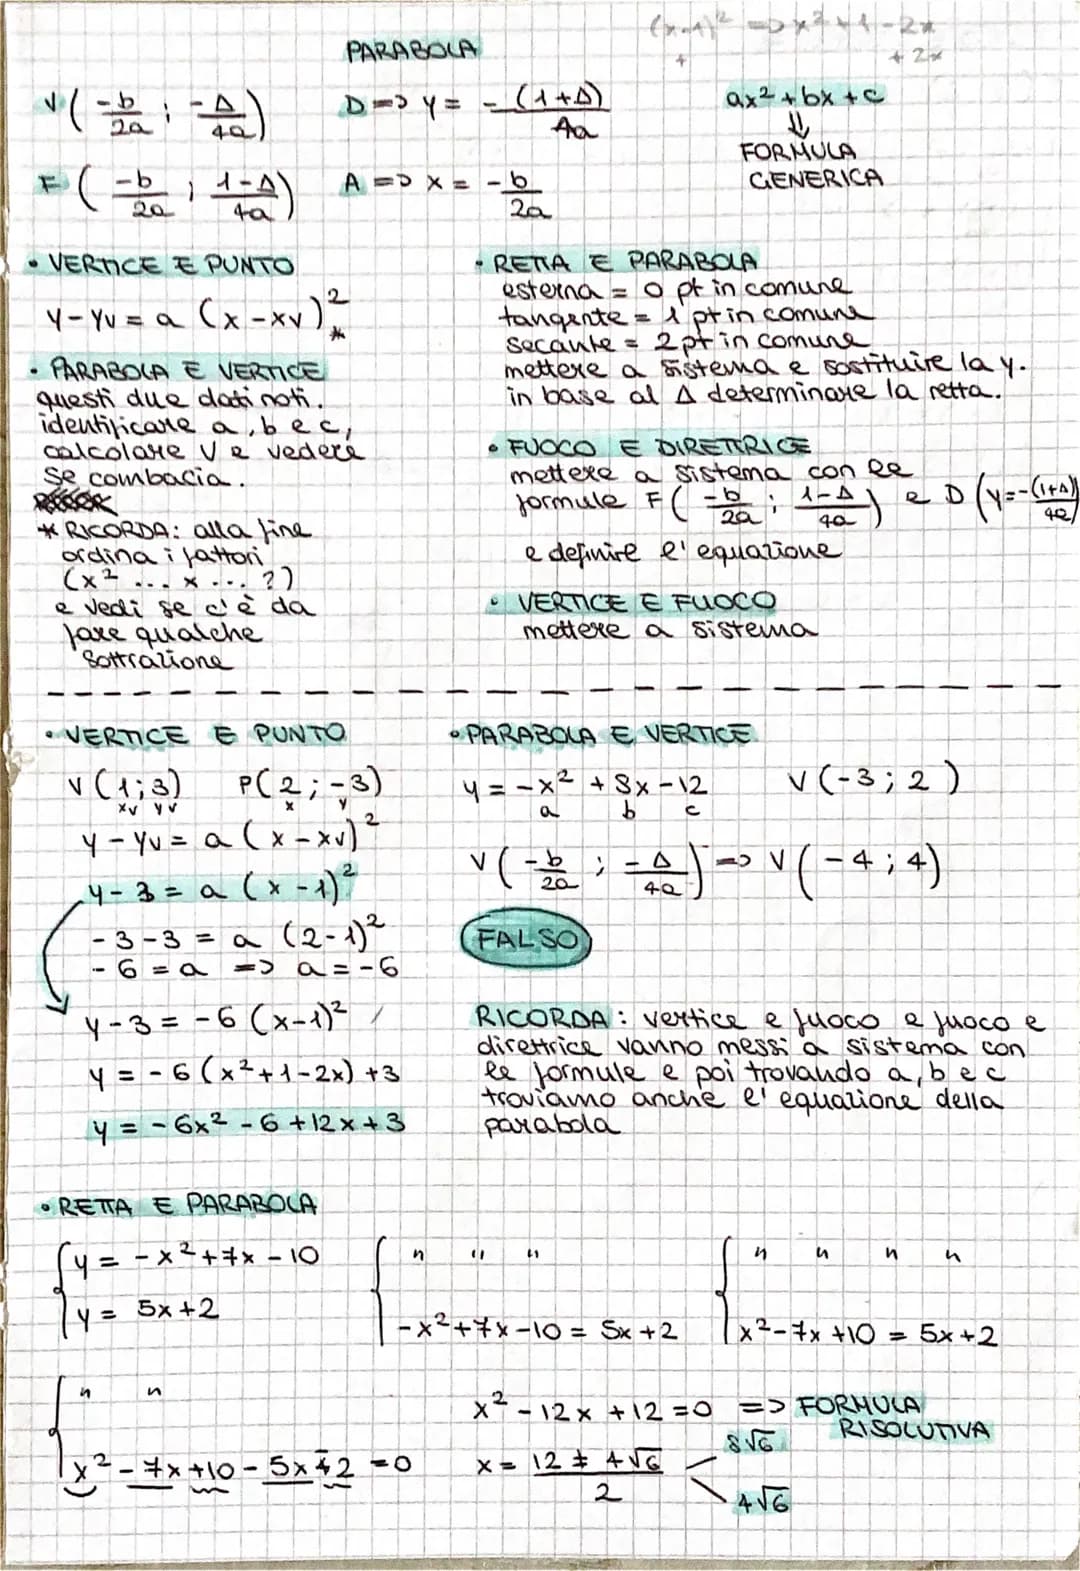 (x-1)² => x² + 1 - 2x
+ + 2x
PARABOLA
V ( -b/2a ; -Δ/4a )
D => y = - (1+Δ)/4a
ax² + bx + c
⇓
FORMULA
GENERICA
F ( -b/2a ; 1-Δ/4a )
A => x = -b/2a
• VERTICE E PUNTO
y - yv = a (x - xv)² *
• PARABOLA E VERTICE
questi due dati noti.
identificare a, b e c,
calcolare V e vedere
se combacia.
* RICORDA: alla fine
ordina i fattori
(x² ... x ... ?)
e vedi se c'è da
fare qualche
sottrazione
• RETTA E PARABOLA
esterna = 0 pt in comune
tangente = 1 pt in comune
secante = 2 pt in comune
mettere a sistema e sostituire la y.
in base al Δ determinare la retta.
• FUOCO E DIRETTRICE
mettere a sistema con le
formule F ( -b/2a ; 1-Δ/4a ) e D (y = -(1+Δ)/4a)
e definire l'equazione
• VERTICE E FUOCO
mettere a sistema
• VERTICE E PUNTO
V (1;3) P(2;-3)
xv yv x y
y - yv = a (x - xv)²
y - 3 = a (x - 1)²
-3 - 3 = a (2-1)²
-6 = a => a = -6
y - 3 = -6 (x-1)²
y = -6 (x² + 1 - 2x) + 3
y = -6x² - 6 + 12x + 3
• PARABOLA E VERTICE
y = -x² + 8x - 12 V (-3 ; 2)
a b c
V ( -b/2a ; -Δ/4a ) => V (-4 ; 4)
FALSO
RICORDA: vertice e fuoco e fuoco e
direttrice vanno messi a sistema con
le formule e poi trovando a, b e c
troviamo anche l'equazione della
parabola
• RETTA E PARABOLA
{ y = -x² + 7x - 10
y = 5x + 2
{ " " "
-x² + 7x - 10 = 5x + 2
{ " " " "
x² - 7x + 10 = 5x + 2
{ " "
x² - 7x + 10 - 5x + 2 = 0
x² - 12x + 12 = 0 => FORMULA
RISOLUTIVA
x = 12 ± 4√6 / 2
8√6
4√6